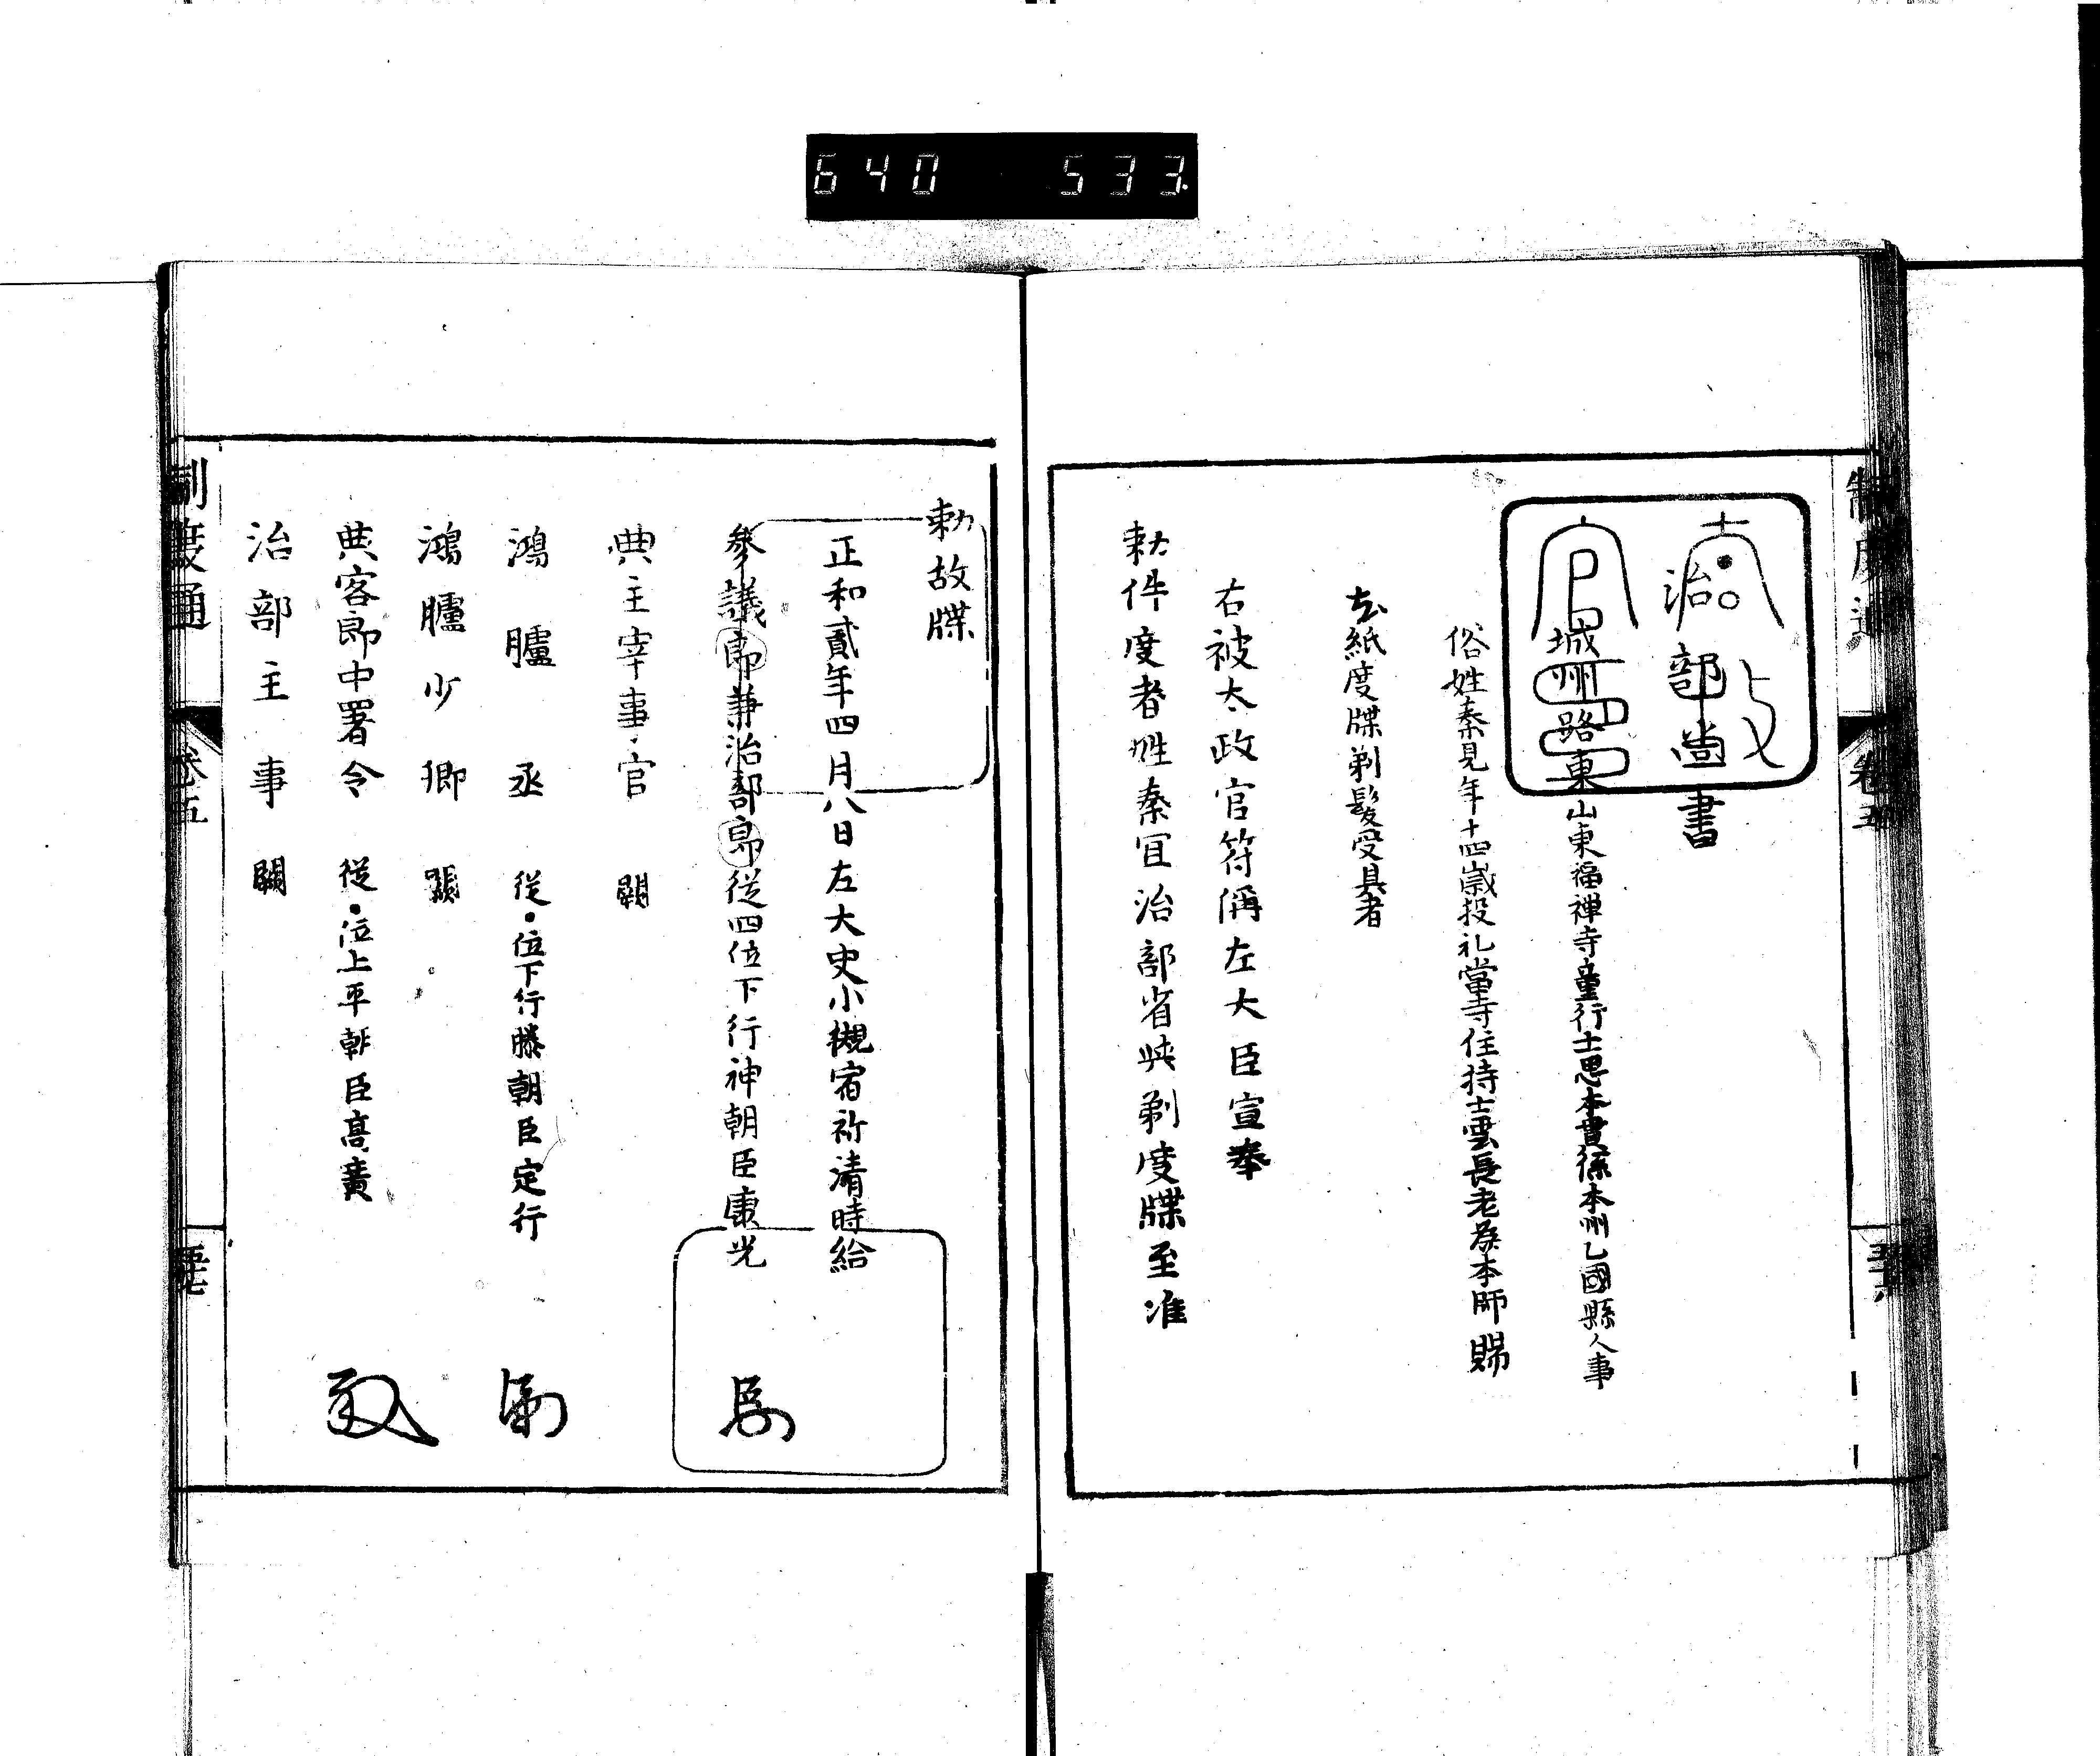 640 533
治部尚書
城州路東山東福禅寺童行士思本貫係本州乙國縣人事
俗姓秦見年十四歳投礼當寺住持士雲長老為本師賜
紙度牒剃髮受具者
右被太政官符偁左大臣宣奉
勅件度者姓秦宜治部省与剃度牒至准
勅故牒
正和貳年四月八日左大史小槻宿祢清時給
参議郎兼治部 従四位下行神朝臣康光
典主宰事官 闕
鴻臚丞 従・位下行藤朝臣定行
鴻臚少卿 闕
典客郎中署令 従・位上平朝臣高廣
治部主事 闕
制度通 卷五